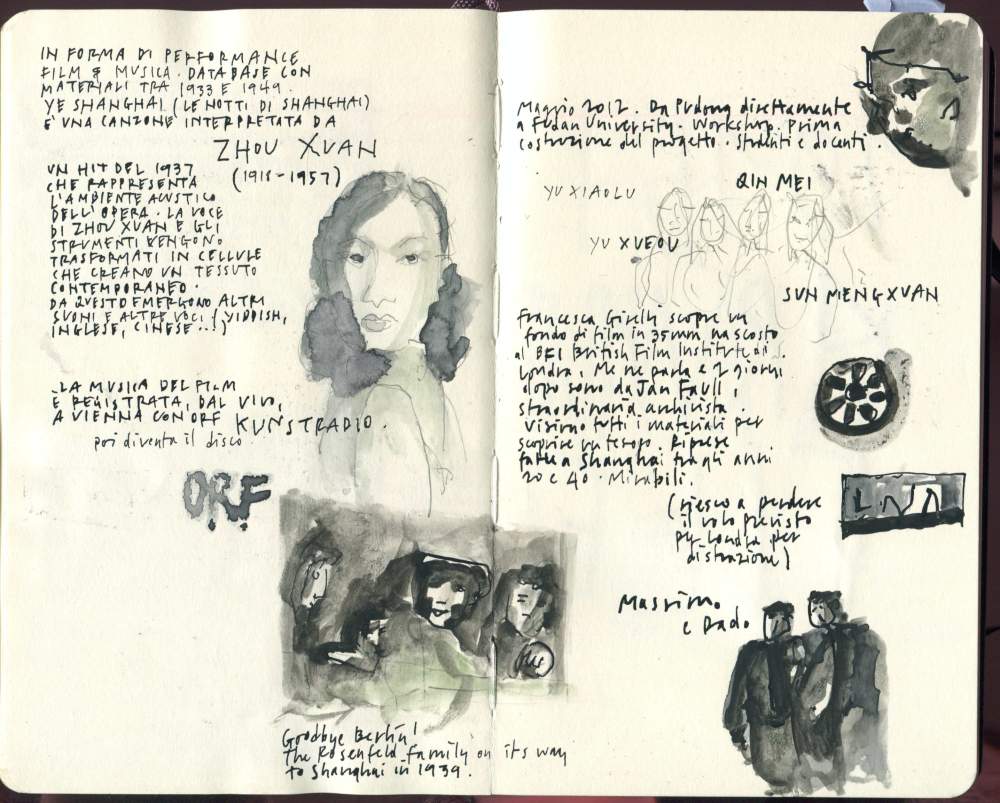 IN FORMA DI PERFORMANCE
FILM & MUSICA. DATABASE CON
MATERIALI TRA 1933 E 1949.
YE SHANGHAI (LE NOTTI DI SHANGHAI)
E' UNA CANZONE INTERPRETATA DA
ZHOU XUAN
(1918-1957)
UN HIT DEL 1937
CHE RAPPRESENTA
L'AMBIENTE ACUSTICO
DELL'OPERA. LA VOCE
DI ZHOU XUAN E GLI
STRUMENTI VENGONO
TRASFORMATI IN CELLULE
CHE CREANO UN TESSUTO
CONTEMPORANEO.
DA QUESTO EMERGONO ALTRI
SUONI E ALTRE VOCI (YIDDISH,
INGLESE, CINESE...)
LA MUSICA DEL FILM
E REGISTRATA, DAL VIVO,
A VIENNA CON ORF KUNSTRADIO.
poi diventa il disco.
ORF
Goodbye Berlin!
The Rosenfeld family on its way
to Shanghai in 1939.
Maggio 2012. Da Pudong direttamente
a Fudan University. Workshop. Prima
costruzione del progetto. Studenti e docenti.
YU XIAOLU
QIN MEI
YU XUEOU
SUN MENGXUAN
Francesca Girelli scopre un
fondo di film in 35mm nascosto
al BFI British Film Institute di
Londra. Me ne parla e 2 giorni
dopo sono da Jan Faull,
straordinaria archivista.
Visiono tutti i materiali per
scoprire un tesoro. Riprese
fatte a Shanghai tra gli anni
20 e 40. Mirabili.
(riesco a perdere
il volo previsto
per Londra per
distrazione)
Massimo
e Dado